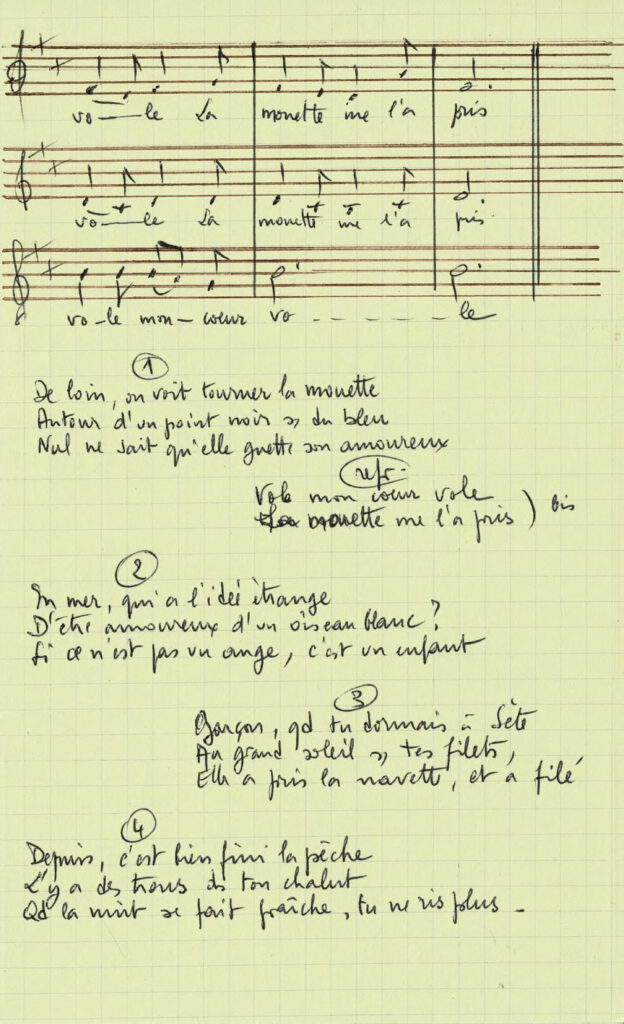 vo — le La mouette me l'a pris
vo — le La mouette me l'a pris
vo - le mon - coeur vo - - - - - le
1
De loin, on voit tourner la mouette
Autour d'un point noir du bleu
Nul ne sait qu'elle guette son amoureux
refr.
Vole mon coeur vole
La mouette me l'a pris ) bis
2
En mer, qui a l'idée étrange
D'être amoureux d'un oiseau blanc ?
Si ce n'est pas un ange, c'est un enfant
3
Garçon, qd tu dormais à Sète
Au grand soleil tes filets,
Elle a pris la navette, et a filé
4
Depuis, c'est bien fini la pêche
L'y a des trous ds ton chalut
Qd la nuit se fait fraîche, tu ne ris plus -